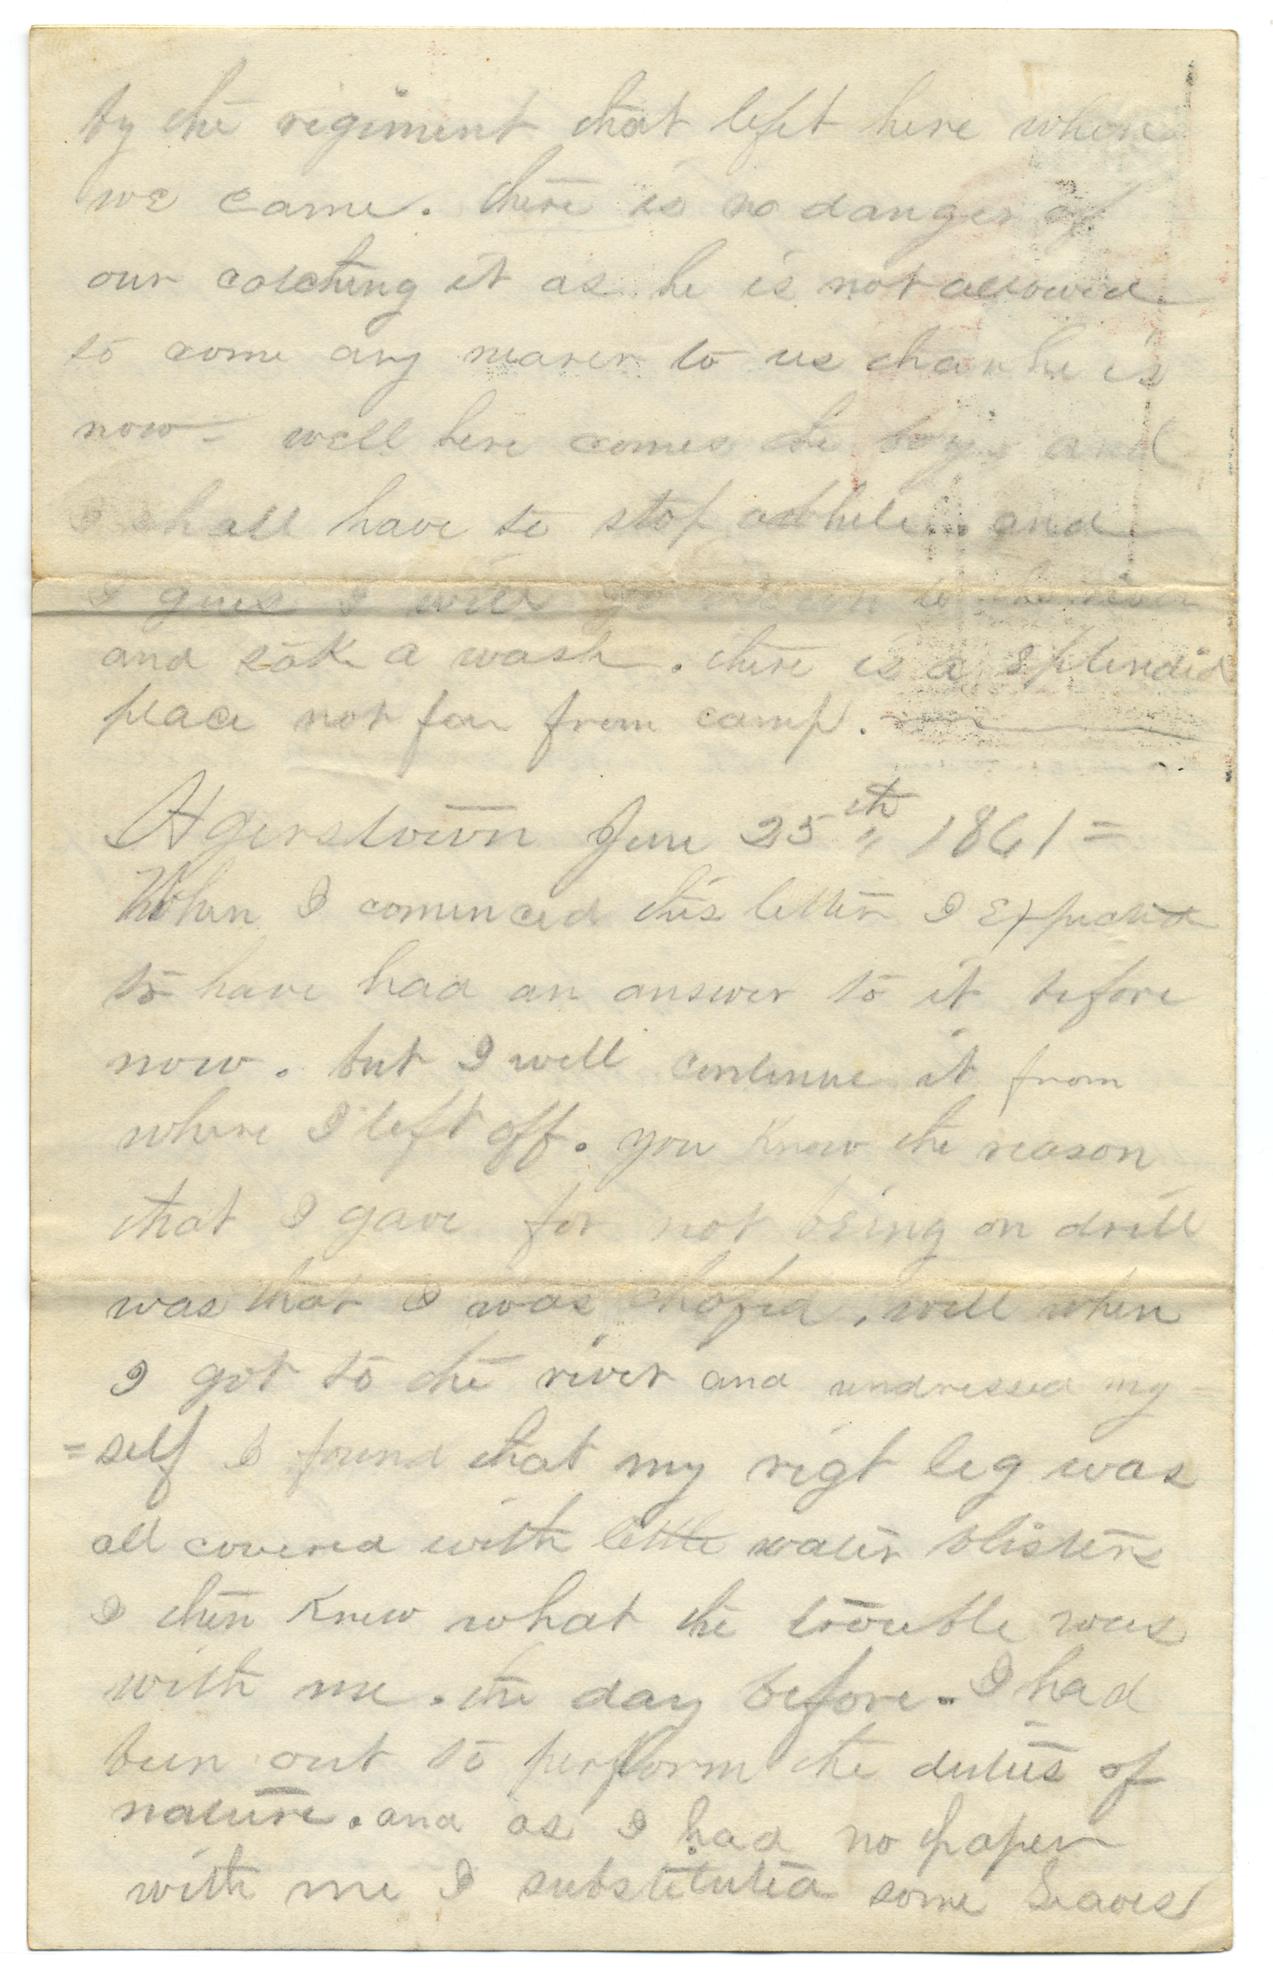 by the regiment that left here when
we came. there is no danger of
our catching it as he is not allowed
to come any nearer to us than he is
now - well here comes the boys and
I shall have to stop awhile. and
I guess I will go down to the river
and take a wash. there is a splendid
place not far from camp.
Agerstown June 25th 1861 =
When I commenced this letter I expected
to have had an answer to it before
now. but I will continue it from
where I left off. you know the reason
that I gave for not being on drill
was that I was chafed, well when
I got to the river and undressed my =
= self I found that my rigt leg was
all covered with little water blisters
I then knew what the trouble was
with me. the day before. I had
been out to perform the duties of
nature. and as I had no paper
with me I substituted some leaves